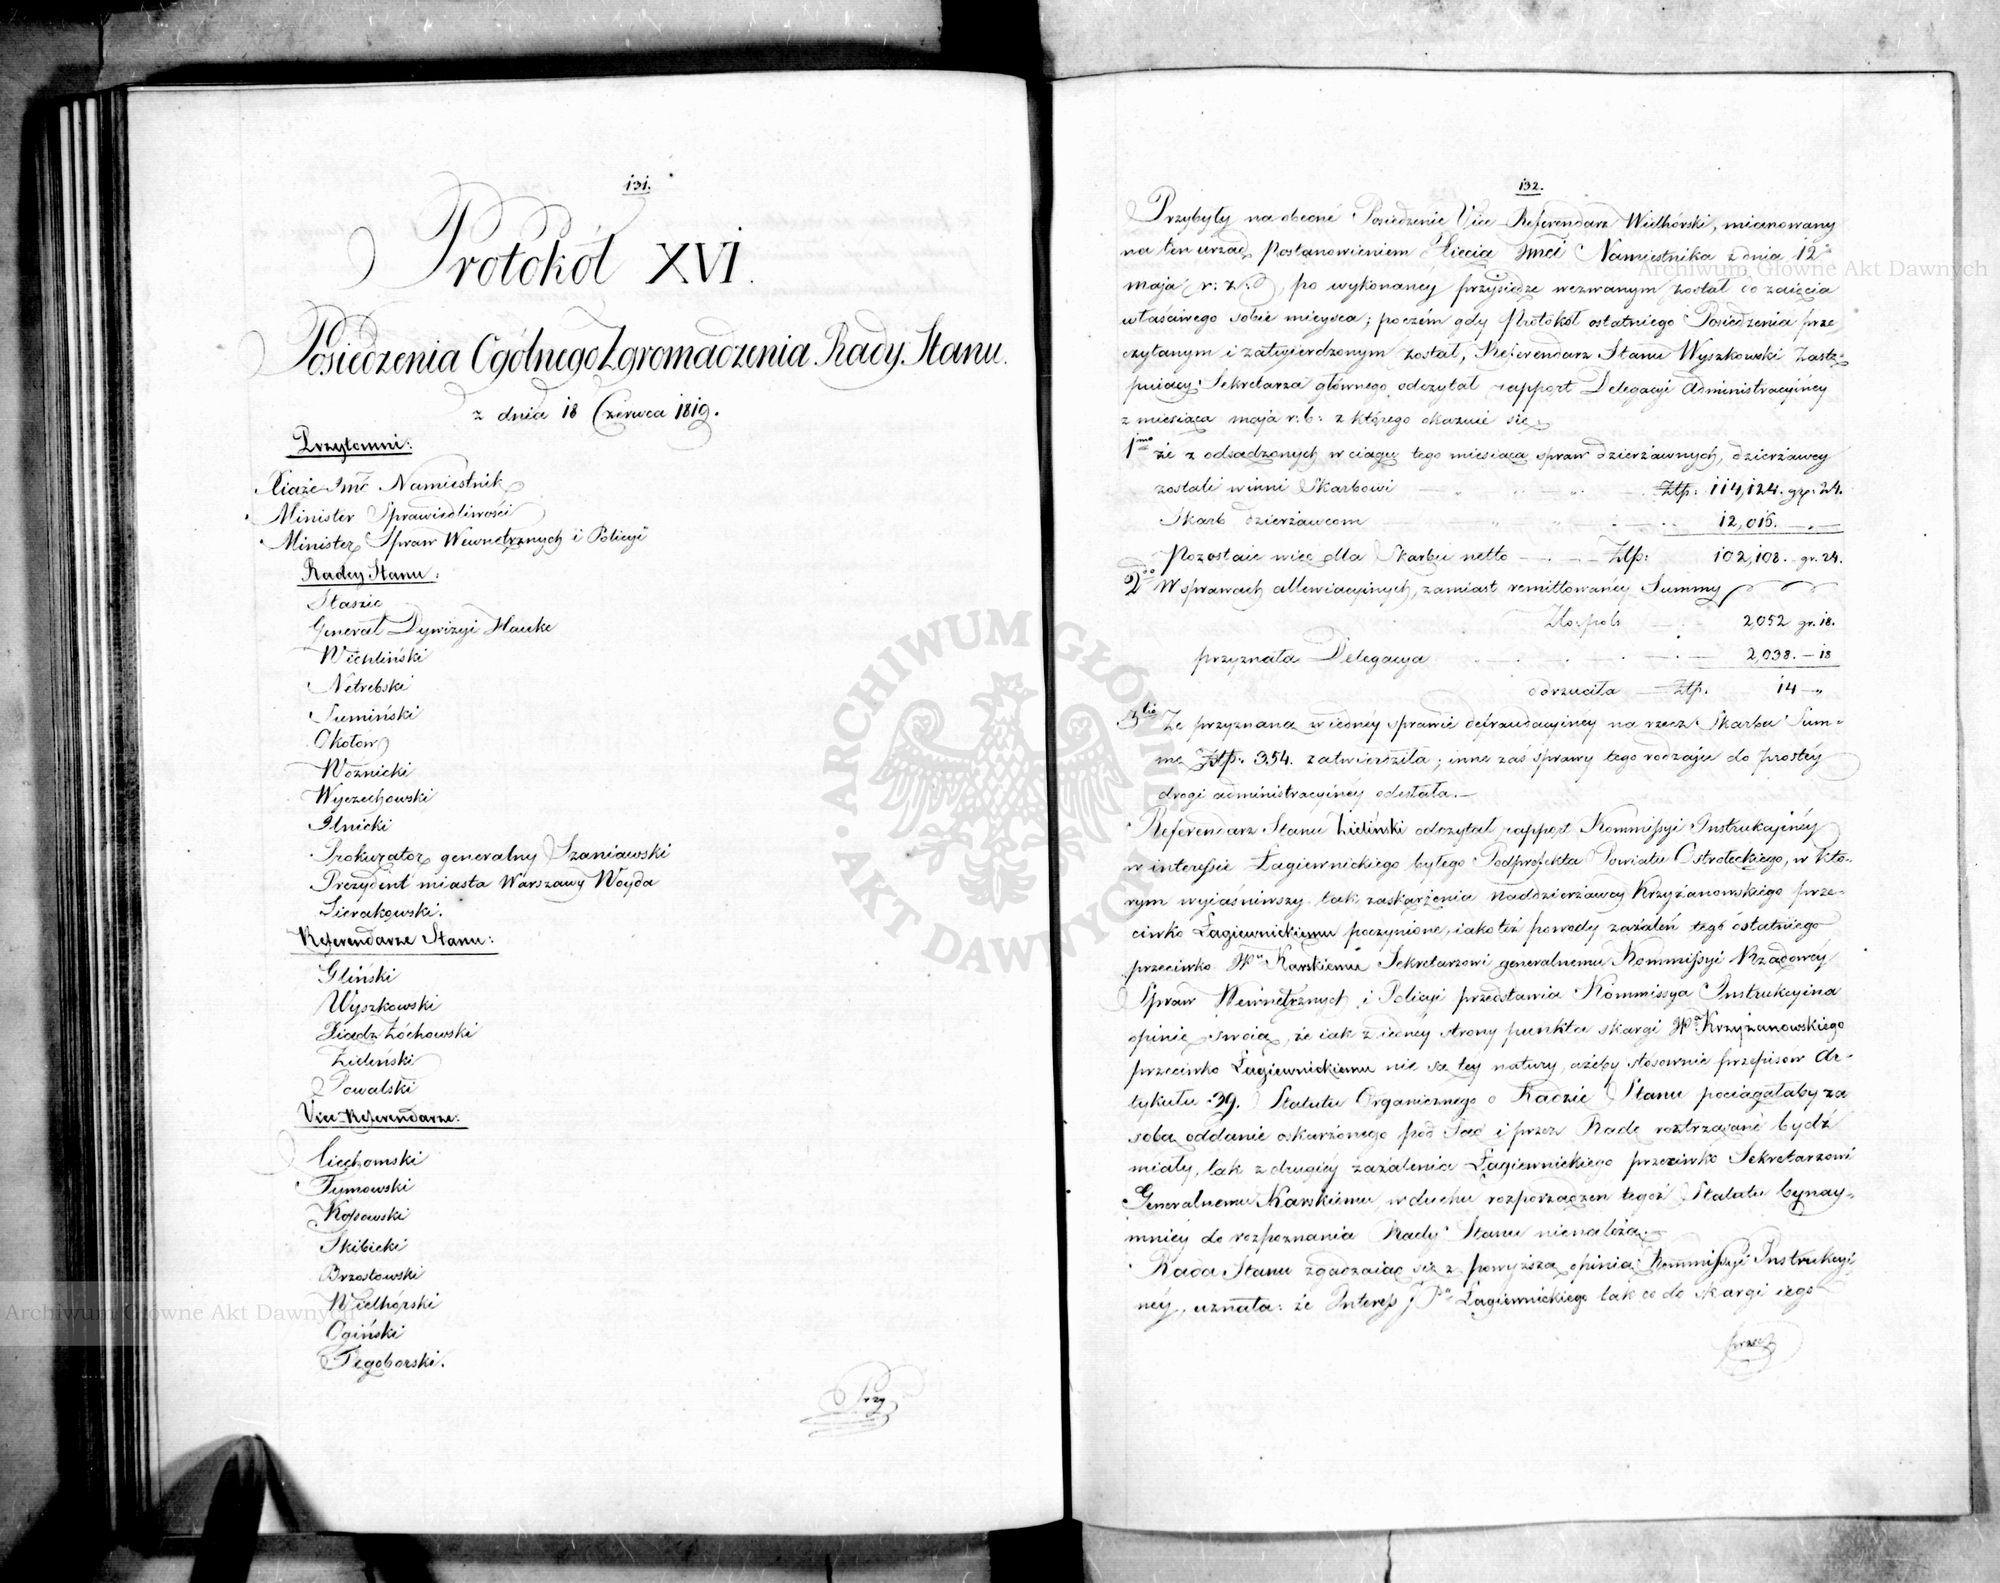 131.
Protokół XVI.
Posiedzenia Ogólnego Zgromadzenia Rady Stanu.
z dnia 18 Czerwca 1819.
Przytomni:
Xiąże Jmć Namiestnik
Minister Sprawiedliwości
Minister Spraw Wewnętrznych i Policyi
Radcy Stanu:
Staszic
Generał Dywizyi Hauke
Wichliński
Netrebski
Sumiński
Okołow
Woźnicki
Wyczechowski
Ilnicki
Prokurator generalny Szaniawski
Prezydent miasta Warszawy Woyda
Sierakowski.
Referendarze Stanu:
Gliński
Wyszkowski
Xiądz Żóchowski
Zieliński
Powalski
Vice-Referendarze:
Ciechomski
Tymowski
Kossowski
Skibicki
Brzostowski
Wielhórski
Ogiński
Tęgoborski.
Przy
132.
Przybyły na obecne Posiedzenie Vice-Referendarz Wielhórski, mianowany
na ten urząd Postanowieniem Xięcia Jmci Namiestnika z dnia 12
maja r: z:, po wykonaney przysiędze wezwanym został do zaięcia
właściwego sobie mieysca; poczém gdy Protokół ostatniego Posiedzenia prze
czytanym i zatwierdzonym został, Referendarz Stanu Wyszkowski zastę-
puiący Sekretarza głównego odczytał rapport Delegacyi Administracyiney
z miesiąca maja r: b: z którego okazuie się,
1mo że z odsądzonych w ciągu tego miesiąca spraw dzierżawnych, dzierżawcy
zostali winni Skarbowi Złp: 114,124. gr: 24.
Skarb dzierżawcom 12,016. — „
Pozostaie więc dla Skarbu netto Złp: 102,108. gr. 24.
2do W sprawach allewiacyinych, zamiast remittowaney Summy
Zło: pols 2,052 gr. 18.
przyznała Delegacya 2,038. — 18
odrzuciła Złp. 14 — „
3tio Że przyznaną w iedney sprawie defraudacyiney na rzecz Skarbu Sum-
mę Złp: 354. zatwierdziła; inne zaś sprawy tego rodzaju do prostéy
drogi administracyiney odesłała.—
Referendarz Stanu Zieliński odczytał rapport Kommissyi Instrukcyinéy
w interessie Łagiewnickiego byłego Podprefekta Powiatu Ostrołęckiego, w któ-
rym wyiaśniwszy tak zaskarżenia Naddzierżawcy Krzyżanowskiego prze-
ciwko Łagiewnickiemu poczynione, iako też powody zażaleń tegó ostatniego
przeciwko Wu Karskiemu Sekretarzowi generalnemu Kommissyi Rządowéy
Spraw Wewnętrznych i Policyi przedstawia Kommissya Instrukcyina
opinię swoią, że iak z iednéy strony punkta skargi Wo Krzyżanowskiego
przeciwko Łagiewnickiemu nie są tey natury, ażeby stosownie przepisów Ar-
tykułu 39. Statutu Organicznego o Radzie Stanu pociągałaby za
sobą oddanie oskarżonego pod Sąd i przez Radę roztrząsane bydź
miały, tak z drugiéy zażalenia Łagiewnickiego przeciwko Sekretarzowi
Generalnemu Karskiemu, w duchu rozporządzeń tegoż Statutu bynay-
mniéy do rozpoznania Rady Stanu nienależą.—
Rada Stanu zgadzaiąc się z powyższą opinią Kommissyi Instrukcyi
néy, uznała: że Interess Pa Łagiewnickiego tak co do skargi iego
przez
ARCHIWUM GŁÓWNE AKT DAWNYCH
Archiwum Główne Akt Dawnych
Archiwum Główne Akt Dawnych